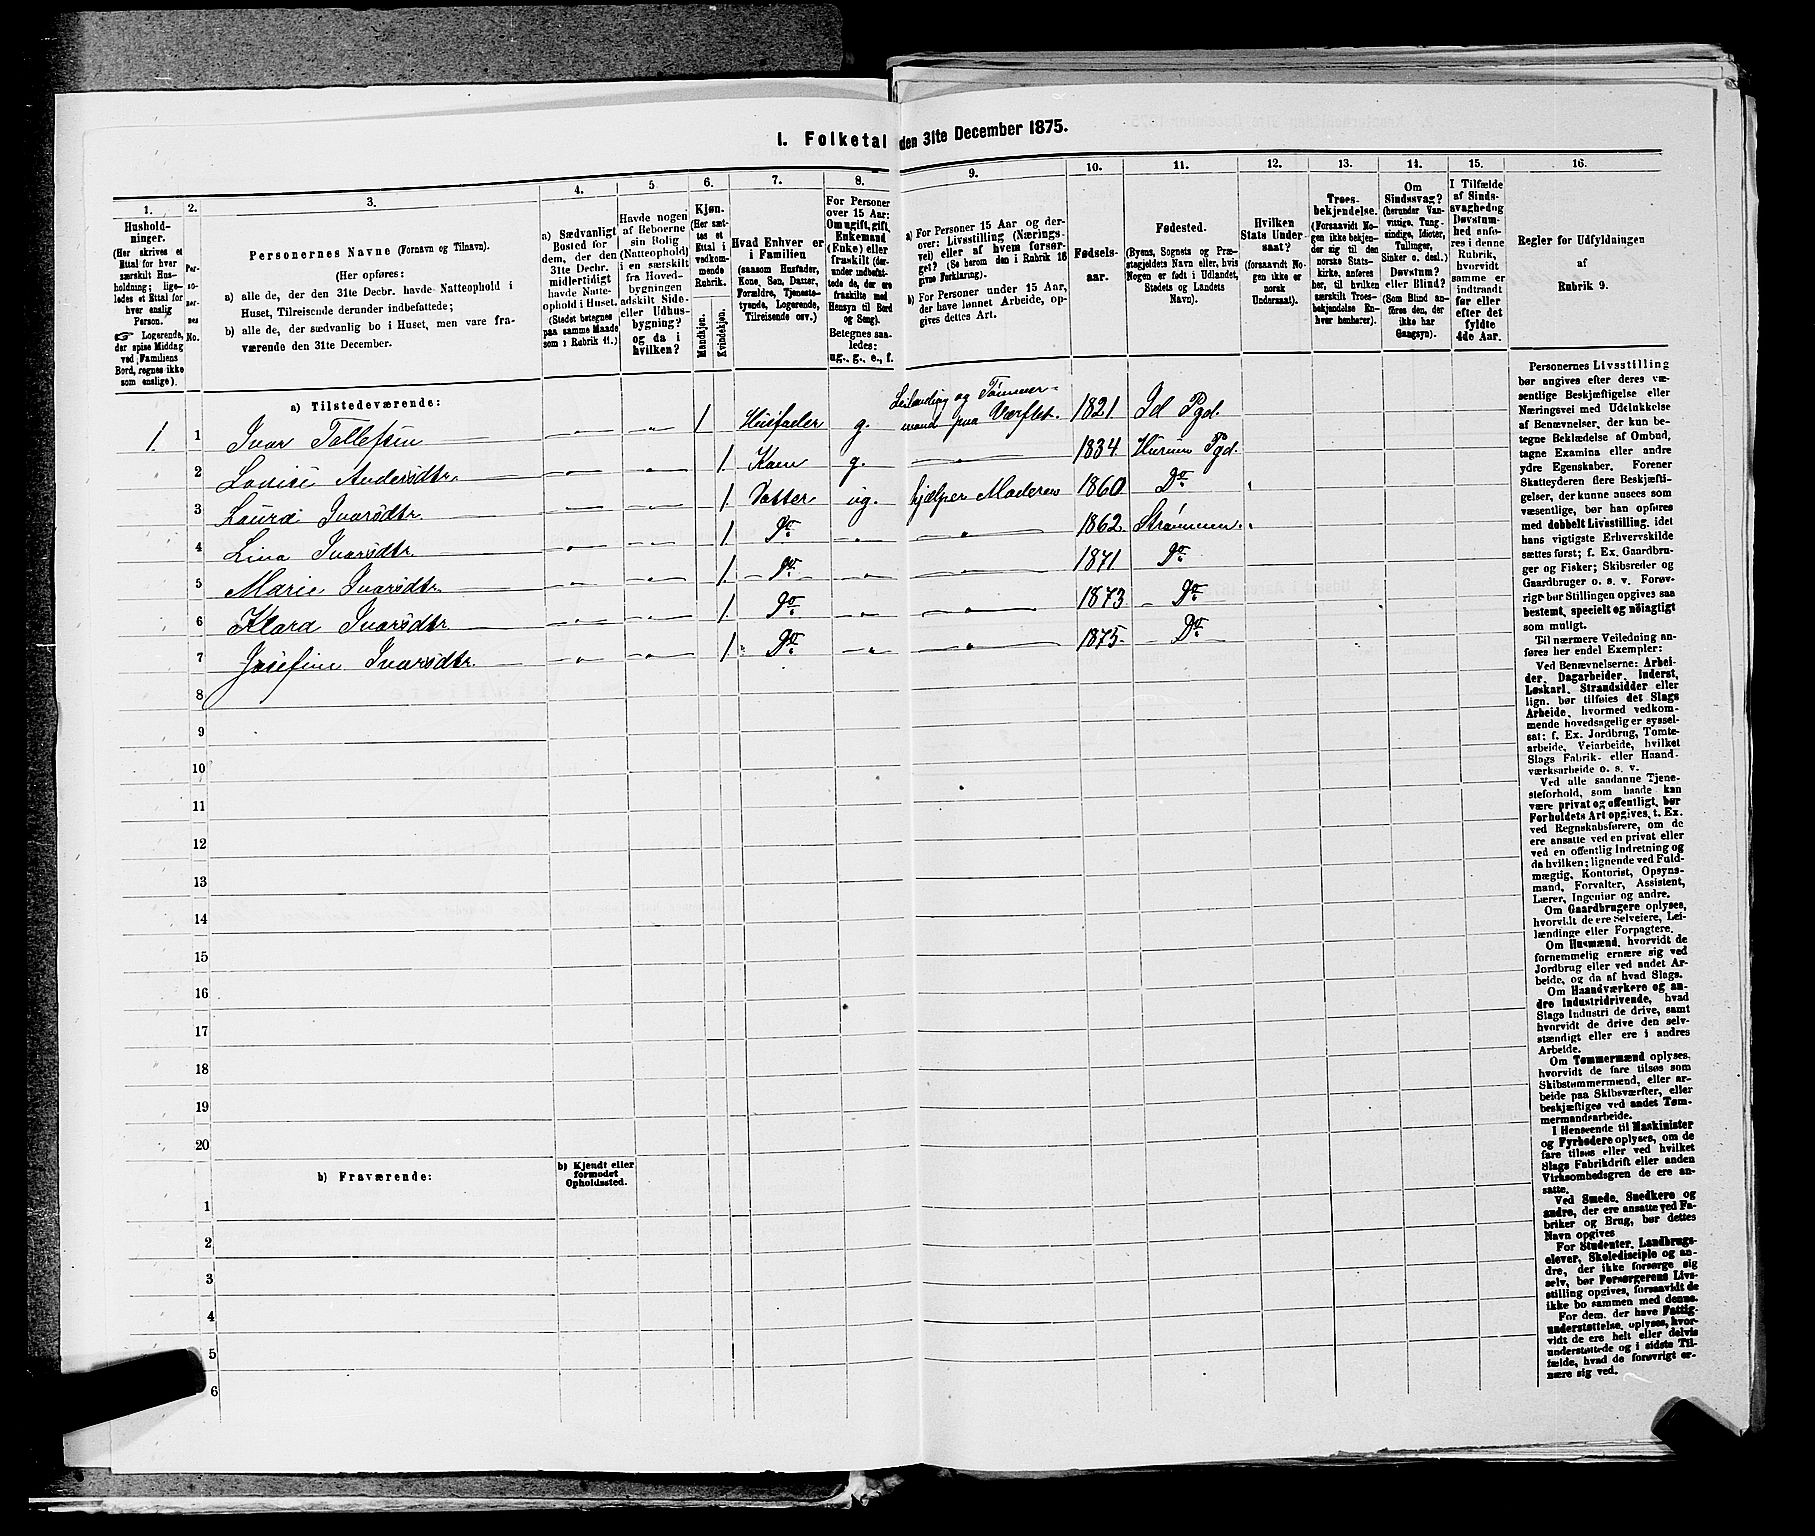 I. Folketal den 31te December 1875.
1. 2. 3. 4. 5. 6. 7. 8. 9. 10. 11. 12. 13. 14. 15. 16.
Hushold-
ninger.
(Her skrives et
Ettal for hver
særskilt Hus-
holdning; lige-
ledes et Ettal for
hver enslig
Person.
☞ Logerende,
der spise Middag
ved Familiens
Bord, regnes ikke
som enslige).
Per-
so-
ner-
nes
No.
Personernes Navne (Fornavn og Tilnavn).
(Her opføres:
a) alle de, der den 31te Decbr. havde Natteophold i
Huset, Tilreisende derunder indbefattede;
b) alle de, der sædvanlig bo i Huset, men vare fra-
værende den 31te December.
a) Sædvanligt
Bosted for
dem, der den
31te Decbr.
midlertidigt
havde Natte-
ophold i Huset.
(Stedet betegnes
paa samme Maade
som i Rubrik 11.)
Havde nogen
af Beboerne
sin Bolig
(Natteophold)
i en særskilt
fra Hoved-
bygningen
adskilt Side-
eller Udhus-
bygning?
og da i
hvilken?
Kjøn.
(Her sæt-
tes et
Ettal i
vedkom-
mende
Rubrik.
Mandkjøn.
Kvindekjøn.
Hvad Enhver er
i Familien
(saasom Husfader,
Kone, Søn, Datter,
Forældre, Tjeneste-
tyende, Logerende,
Tilreisende osv.)
For Personer
over 15 Aar:
Om ugift, gift,
Enkemand
(Enke) eller
fraskilt (der-
under indbefat-
tede de, der ere
fraskilte med
Hensyn til Bord
og Seng).
Betegnes saa-
ledes:
ug., g., e., f.
a) For Personer 15 Aar og der-
over: Livsstilling (Nærings-
vei) eller af hvem forsør-
get? (Se herom den i Rubrik 16
givne Forklaring).
b) For Personer under 15 Aar,
der have lønnet Arbeide, op-
gives dettes Art.
Fødsels-
aar.
Fødested.
(Byens, Sognets og Præ-
stegjeldets Navn eller, hvis
Nogen er født i Udlandet,
Stedets og Landets
Navn).
Hvilken
Stats Under-
saat?
(forsaavidt No-
gen ikke er
norsk
Undersaat).
Troes-
bekjendelse.
(Forsaavidt No-
gen ikke bekjen-
der sig til den
norske Stats-
kirke, anføres
her, til hvilken
særskilt Troes-
bekjendelse En-
hver henhører).
Om
Sindssvag?
(herunder Van-
vittige, Tung-
sindige, Idioter,
Tallinger,
Sinker o. desl.)
Døvstum?
eller Blind?
(Som Blind an-
føres den, der
ikke har
Gangsyn).
I Tilfælde
af Sinds-
svaghed og
Døvstum-
hed anfø-
res i denne
Rubrik,
hvorvidt
samme er
indtraadt
før eller
efter det
fyldte
4de Aar.
Regler for Udfyldningen
af
Rubrik 9.
a) Tilstedeværende:
1. 1 Ivar Tollefsen 1 Husfader g. Leilænding og Tømmer-
mand paa Værftet. 1821 Id Pgd.
2 Lovise Andersdtr. 1. Kone g. 1834 Hurum Pgd.
3 Laura Ivarsdtr. 1 Datter ug. hjælper Moderen 1860 Do
4 Lina Ivarsdtr. 1. Do 1862 Strømmen.
5 Marie Ivarsdtr. 1. Do 1871 Do
6 Klara Ivarsdtr. 1 Do 1873 Do
7 Josefine Ivarsdtr. 1. Do 1875 Do
8
9
10
11
12
13
14
15
16
17
18
19
20
b) Fraværende:
b) Kjendt eller
formodet
Opholdssted.
1
2
3
4
5
6
Personernes Livsstilling
bør angives efter deres væ-
sentlige Beskjæftigelse eller
Næringsvei med Udelukkelse
af Benævnelser, der kun be-
tegne Beklædelse af Ombud,
tagne Examina eller andre
ydre Egenskaber. Forener
Skatteyderen flere Beskjæfti-
gelser, der kunne ansees som
væsentlige, bør han opføres
med dobbelt Livsstilling, idet
hans vigtigste Erhvervskilde
sættes først; f. Ex. Gaardbru-
ger og Fisker; Skibsreder og
Gaardbruger o. s. v. Forøv-
rigt bør Stillingen opgives saa
bestemt, specielt og nøiagtigt
som muligt.
Til nærmere Veiledning an-
føres her endel Exempler:
Ved Benævnelserne: Arbei-
der, Dagarbeider, Inderst,
Løskarl, Strandsidder eller
lign. bør tilføies det Slags
Arbeide, hvormed vedkom-
mende hovedsagelig er syssel-
sat; f. Ex. Jordbrug, Tomte-
arbeide, Veiarbeide, hvilket
Slags Fabrik- eller Haand-
værksarbeide o. s. v.
Ved alle saadanne Tjene-
steforhold, som baade kan
være privat og offentligt, bør
Forholdets Art opgives, t. Ex.
ved Regnskabsførere, om de
ere ansatte ved en privat eller
ved en offentlig Indretning og
da hvilken; lignende ved Fuld-
mægtig, Kontorist, Opsyns-
mand, Forvalter, Assistent,
Lærer, Ingeniør og andre.
Om Gaardbrugere oplyses,
hvorvidt de ere Selveiere, Lei-
lændinge eller Forpagtere.
Om Husmænd, hvorvidt de
fornemmelig ernære sig ved
Jordbrug eller ved andet Ar-
beide, og da af hvad Slags.
Om Haandværkere og an-
dre Industridrivende, hvad
Slags Industri de drive, samt
hvorvidt de drive den selv-
stændigt eller ere i andres
Arbeide.
Om Tømmermænd oplyses,
hvorvidt de fare tilsøs som
Skibstømmermænd, eller ar-
beide paa Skibsværfter, eller
beskjæftiges ved andet Tøm-
mermandsarbeide.
I Henseende til Maskinister
og Fyrbødere oplyses, om de
fare tilsøs eller ved hvilket
Slags Fabrikdrift eller anden
Virksomhedsgren de ere an-
satte.
Ved Smede, Snedkere og
andre, der ere ansatte ved Fa-
briker og Brug, bør dettes
Navn opgives
For Studenter, Landbrugs-
elever, Skoledisciple og an-
dre, der ikke forsørge sig
selv, bør Forsørgerens Livs-
stilling opgives, forsaavidt de
ikke bo sammen med denne.
For dem, der have Fattig-
understøttelse, oplyses, hvor-
vidt de ere helt eller delvis
understøttede og i sidste Til-
fælde, hvad de forøvrigt er-
nære sig ved.